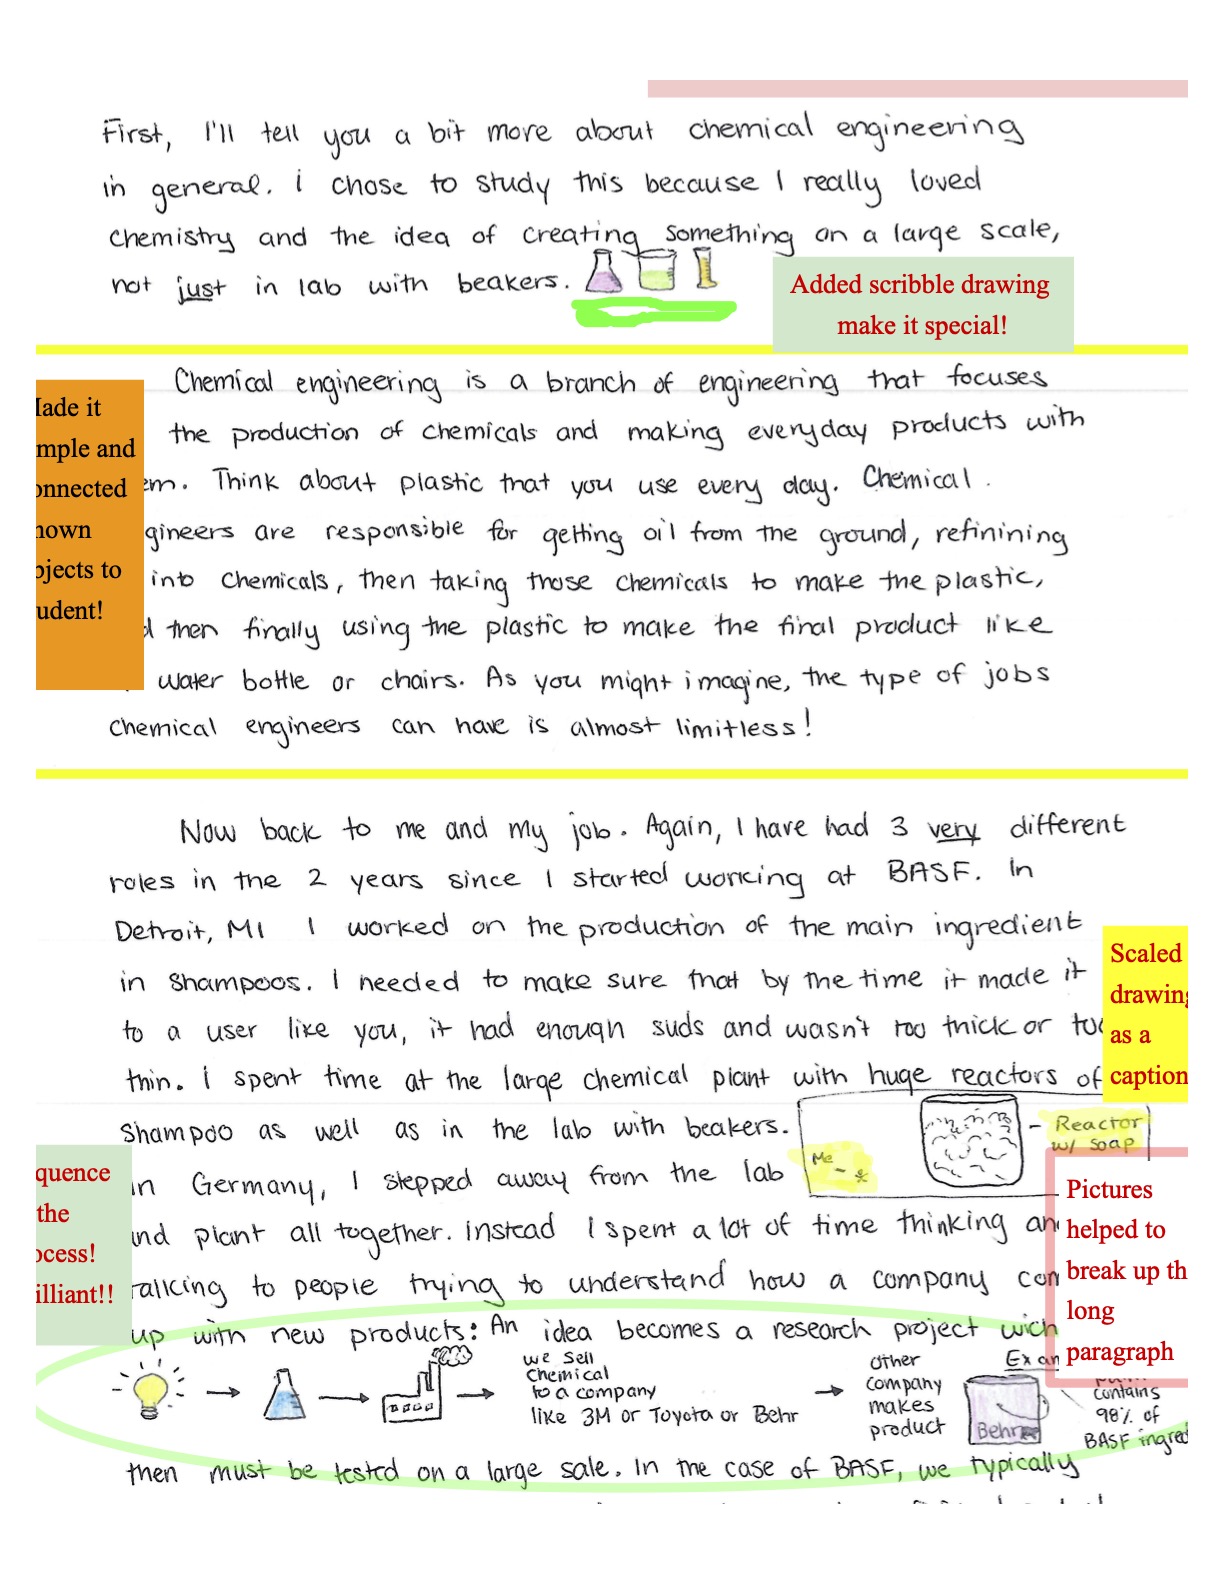 First, I'll tell you a bit more about chemical engineering
in general. I chose to study this because I really loved
chemistry and the idea of creating something on a large scale,
not just in lab with beakers.
Added scribble drawing
make it special!
Chemical engineering is a branch of engineering that focuses
the production of chemicals and making everyday products with
em. Think about plastic that you use every day. Chemical
gineers are responsible for getting oil from the ground, refinining
into chemicals, then taking those chemicals to make the plastic,
d then finally using the plastic to make the final product like
water bottle or chairs. As you might imagine, the type of jobs
chemical engineers can have is almost limitless!
ade it
mple and
onnected
nown
bjects to
udent!
Now back to me and my job. Again, I have had 3 very different
roles in the 2 years since I started working at BASF. In
Detroit, MI I worked on the production of the main ingredient
in shampoos. I needed to make sure that by the time it made it
to a user like you, it had enough suds and wasn't too thick or too
thin. I spent time at the large chemical plant with huge reactors of
shampoo as well as in the lab with beakers.
Scaled
drawing
as a
caption
Me
Reactor
w/ soap
In Germany, I stepped away from the lab
and plant all together. Instead I spent a lot of time thinking an
talking to people trying to understand how a company com
up with new products: An idea becomes a research project wich
quence
the
ocess!
illiant!!
Pictures
helped to
break up th
long
paragraph
we sell
chemical
to a company
like 3M or Toyota or Behr
other
company
makes
product
Exam
Behr
contains
98% of
BASF ingred
then must be tested on a large sale. In the case of BASF, we typically